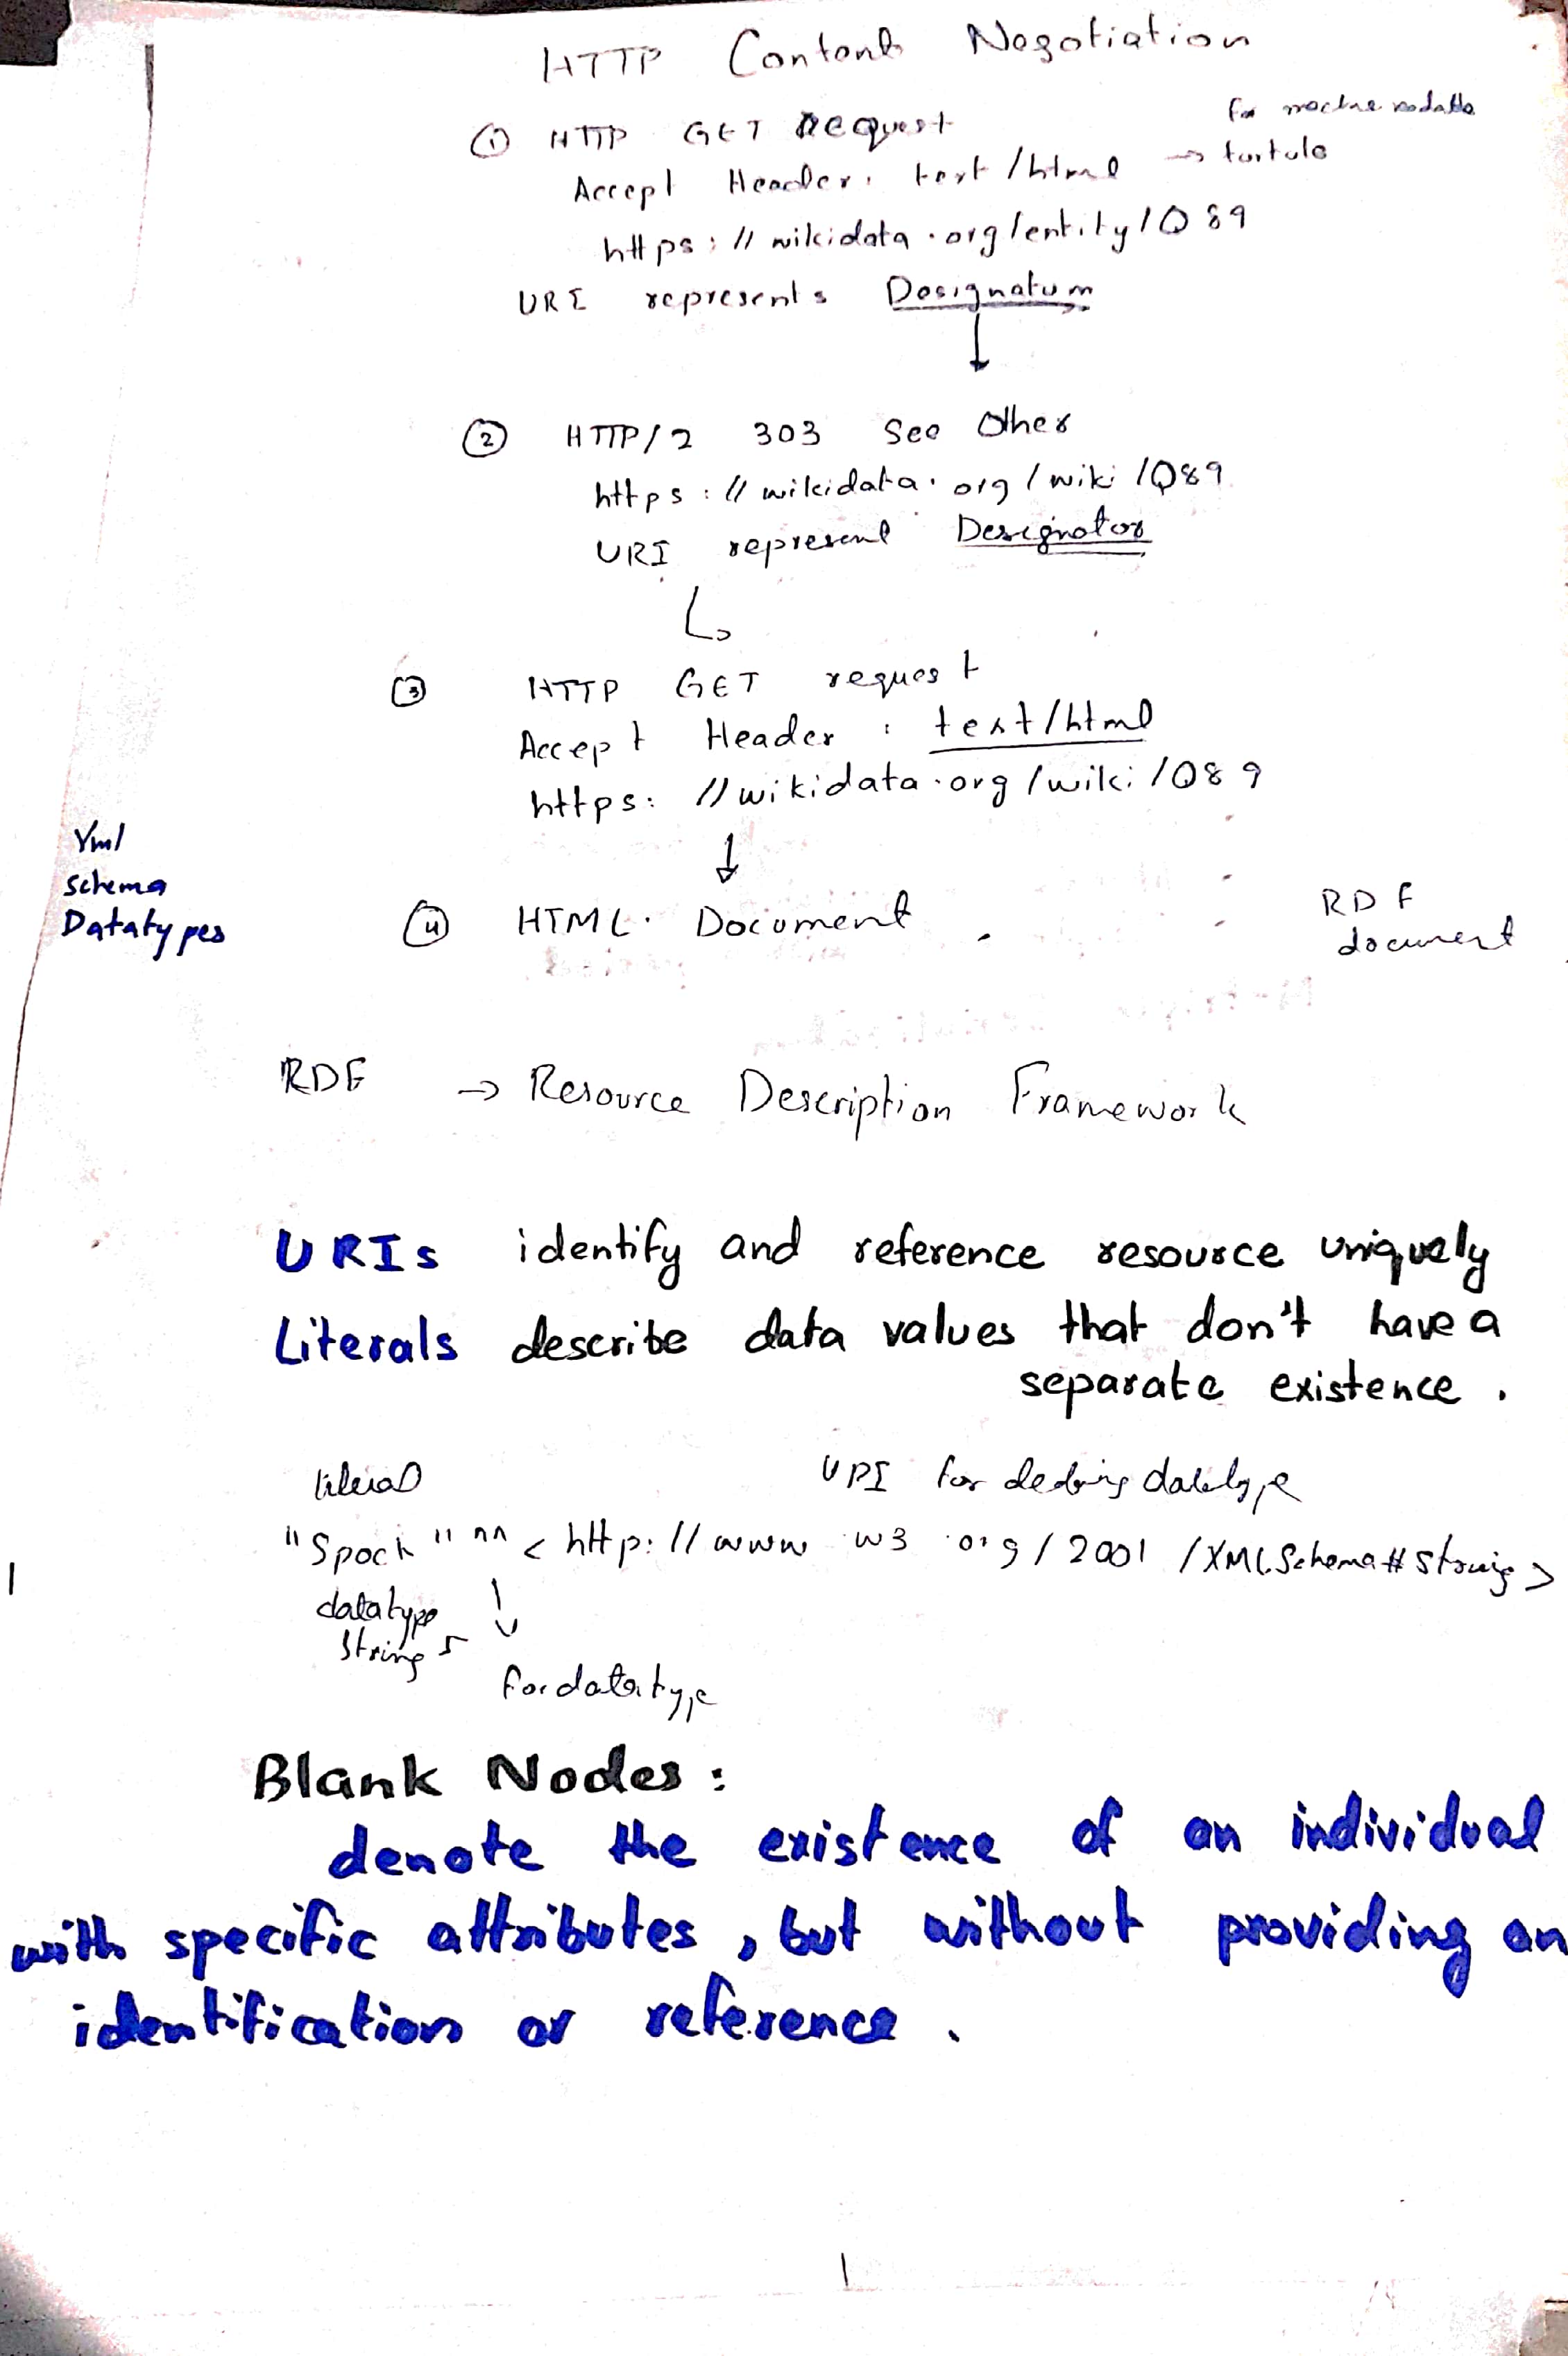 HTTP Content Negotiation
① HTTP GET Request
for machine readable
Accept Header: text/html → turtule
https://wikidata.org/entity/Q89
URI represents Designatum
② HTTP/2 303 See Other
https://wikidata.org/wiki/Q89
URI represent Designator
③ HTTP GET request
Accept Header : text/html
https://wikidata.org/wiki/Q89
Yml
Schema
Datatypes
④ HTML Document
RDF
document
RDF → Resource Description Framework
URIs identify and reference resource uniquely
Literals describe data values that don't have a
separate existence .
literal
URI for datatype
"Spock"^^<http://www.w3.org/2001/XMLSchema#string>
datatype
string
for datatype
Blank Nodes :
denote the existence of an individual
with specific attributes, but without providing an
identification or reference .